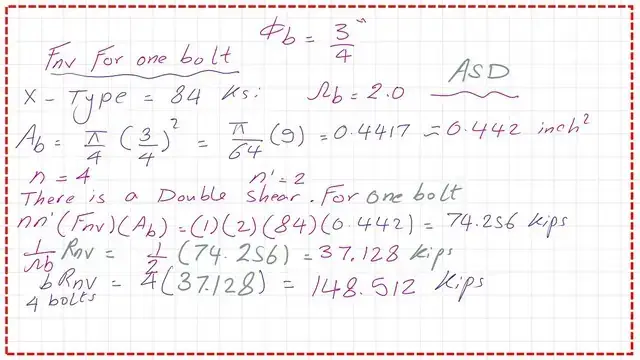 Φb = 3"/4
Fnv For one bolt
ASD
X - Type = 84 Ksi
Ωb = 2.0
Ab = π/4 (3/4)² = π/64 (9) = 0.4417 ≈ 0.442 inch²
n = 4 n' = 2
There is a Double shear. For one bolt
nn' (Fnv)(Ab) = (1)(2)(84)(0.442) = 74.256 Kips
1/Ωb Rnv = 1/2 (74.256) = 37.128 Kips
b Rnv = 4(37.128) = 148.512 Kips
4 bolts